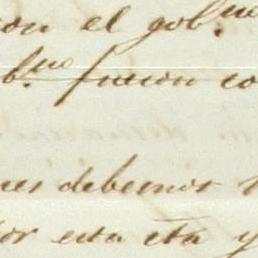 con el gob.no
b.no fueron co
nes debemos
por esta eta y